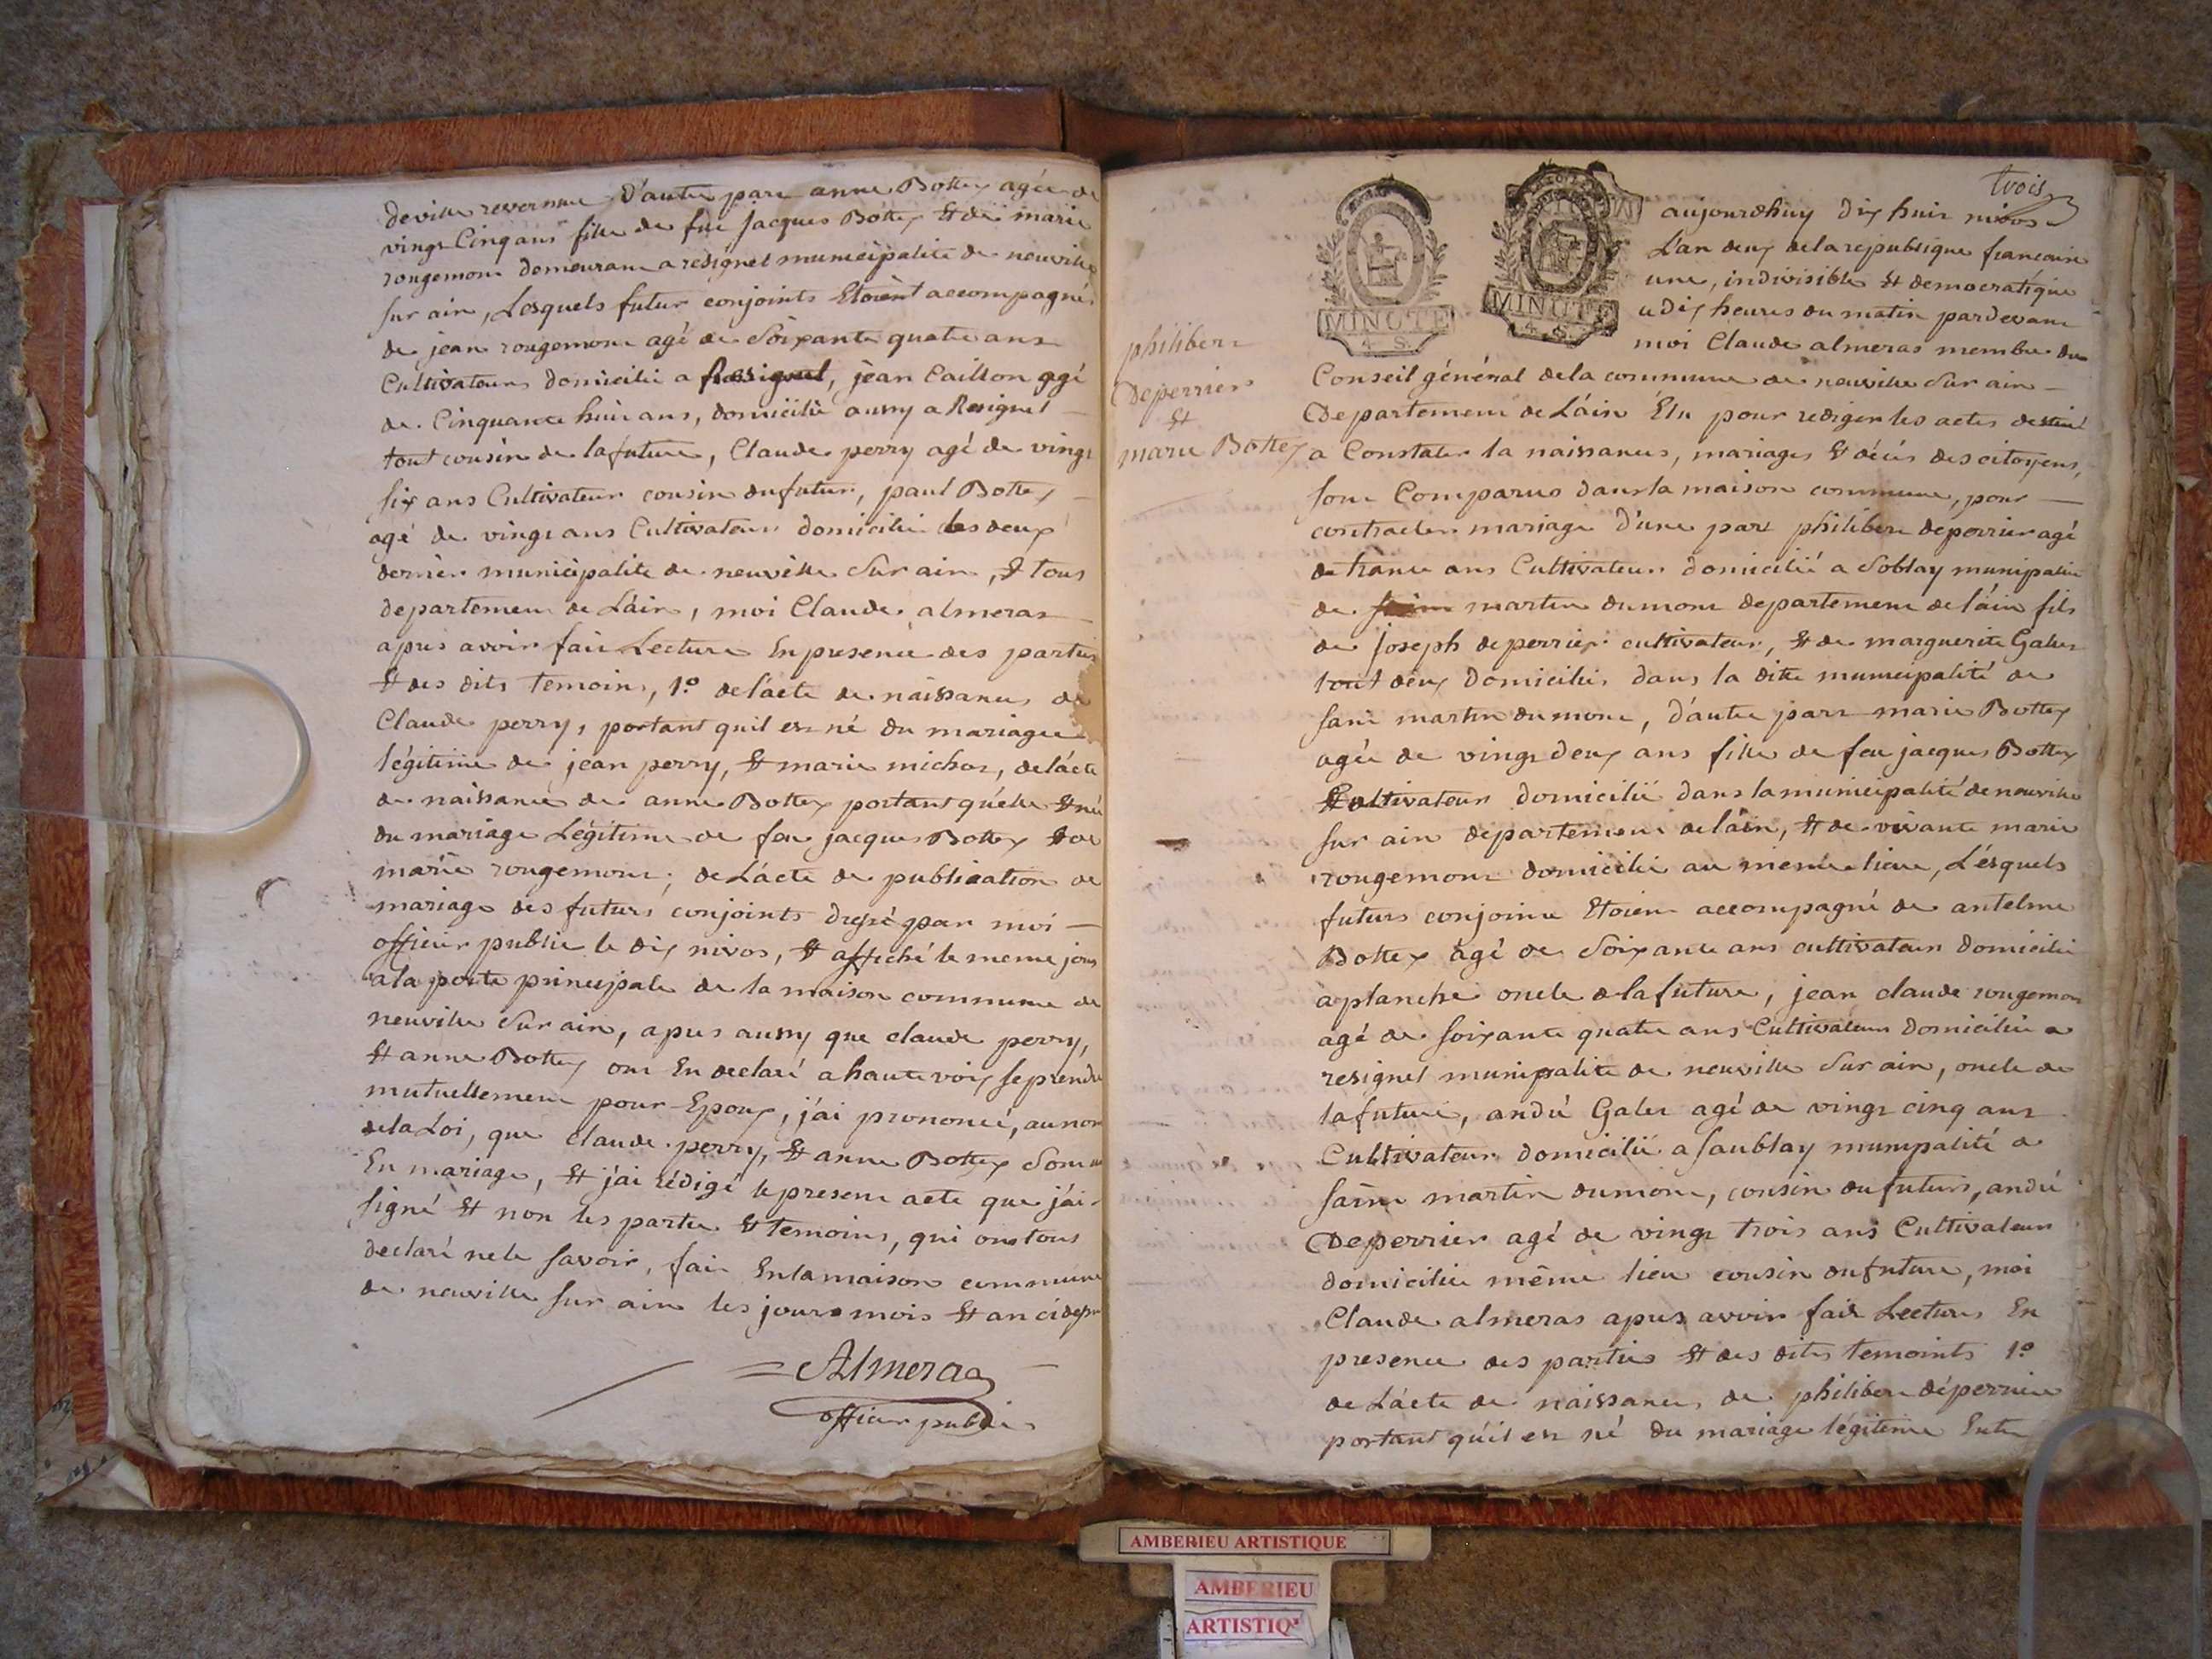 deville revermne D'autre part anne Bottex agée de
vingt Cinq ans fille de feu Jacques Bottex Et de marie
rougemont demeurant a resignel municipalite de neuville
sur ain, Lesquels futur conjoints Etoient accompagnés
de jean rougemont agé de Soixante quatre ans
Cultivateur domicilié a Ressignel, jean Caillon agé
de Cinquante huit ans, domicilié aussy a Resignel
tout cousin de lafuture, Claude perry agé de vingt
six ans Cultivateur cousin dufutur, paul Bottex
agé de vingt ans Cultivateur domicilié les deux
dernier municipalite de neuville Sur ain, Et tous
departement de L'ain, moi Claude almeras
apres avoir fait Lecture En presence des parties
Et des dits temoins, 1.º de l'acte de naissance de
Claude perry, portant quil est né du mariage
légitime de jean perry, Et marie michot, de l'acte
de naissance de anne Bottex portant qu'elle Et né
du mariage Légitime de feu jacques Bottex Et de
marie rougemont; de L'acte de publication de
mariage des futurs conjoints dressé par moi
officier public le dix nivos, Et affiché le meme jour
a la porte principale de la maison commune de
neuville Sur ain, apres aussy que claude perry,
Et anne Bottex ont En declaré a haute voix se prendre
mutuellement pour Epoux, j'ai prononcé, au nom
de la Loi, que claude perry, Et anne Bottex Sont uni
En mariage, Et j'ai rédigé le present acte que j'ai
signé Et non les partie Et temoins, qui ons tous
declaré ne le savoir, fait En la maison commune
de neuville sur ain les jours mois Et an ci depr
Almeras
officier public
trois
aujourdhuy dix huit nivos
L'an deux de la republique francaise
une, indivisible Et democratique
a dix heures du matin pardevant
moi Claude almeras membre du
MINUTE
4. S.
MINUTE
4. S.
philibert
Deperrier
Et
marie Bottex
Conseil général de la commune de neuville Sur ain
Departement de L'ain Elu pour rediger les actes destiné
a Constater la naissances, mariages Et décés des citoyens,
sont Comparus dans la maison commune, pour
contracter mariage d'une part philibert deperrier agé
de trante ans Cultivateur domicilié a Soblay munipalite
de martin dumont departement de l'ain fils
de Joseph deperrier cultivateur, Et de marguerite Galet
tout deux domiciliés dans la dite municipalité de
saint martin dumont, d'autre part marie Bottex
agée de vingt deux ans fille de feu jacques Bottex
Cultivateur domicilié dans la municipalité de neuville
sur ain departement de l'ain, Et de vivante marie
rougemont domicilié au même lieu, Lésquels
futurs conjoint Etoient accompagné de antelme
Bottex agé de Soixante ans cultivateur domicilié
a planche oncle de lafuture, jean claude rougemont
agé de soixante quatre ans Cultivateur domicilié a
resignel munipalite de neuville Sur ain, oncle de
lafuture, andré Galet agé de vingt cinq ans
Cultivateur domicilié a Saublay munipalité a
saint martin dumont, cousin du futur, andré
Deperrier agé de vingt trois ans Cultivateur
domicilié même lieu cousin dufuture, moi
Claude almeras apres avoir fait Lecture En
presence des parties Et des dits temoints 1.º
de L'acte de naissance de philibert déperrier
portant qu'il est né du mariage légitime Entre
AMBERIEU ARTISTIQUE
AMBERIEU
ARTISTIQ